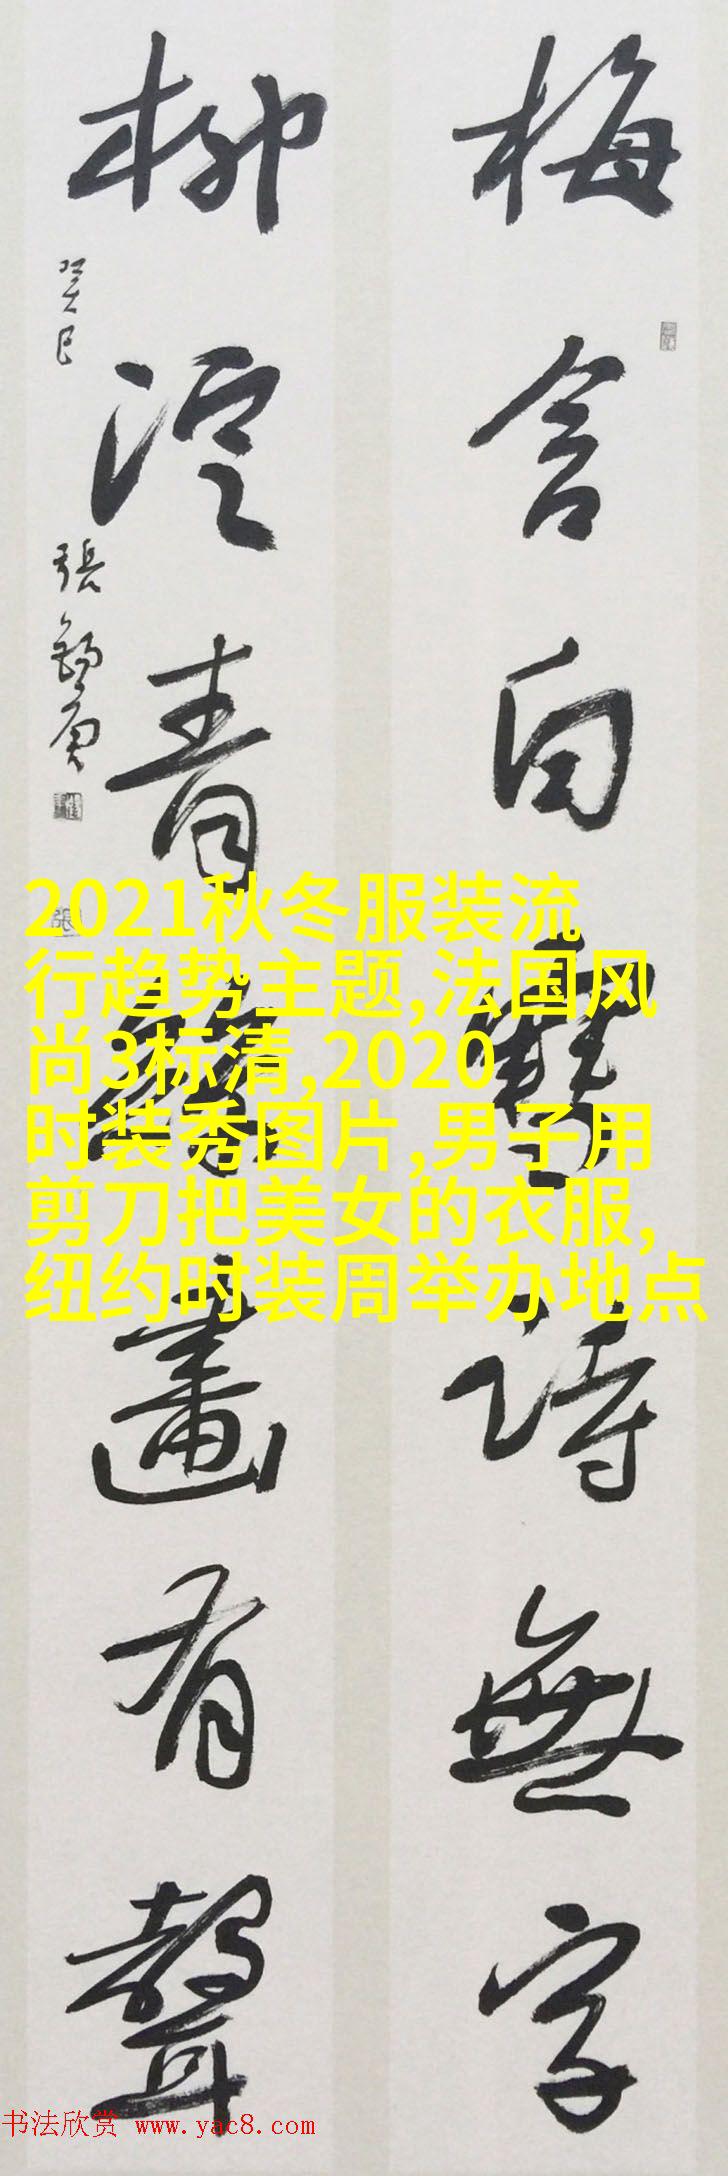 梅含白雪詩無字
柳青畫有聲
癸巳
張錫庚
2021秋冬服装流
行趋势主题,法国风
尚3标清,2020
时装秀图片,男子用
剪刀把美女的衣服,
纽约时装周举办地点
书法欣赏 www.yac8.com